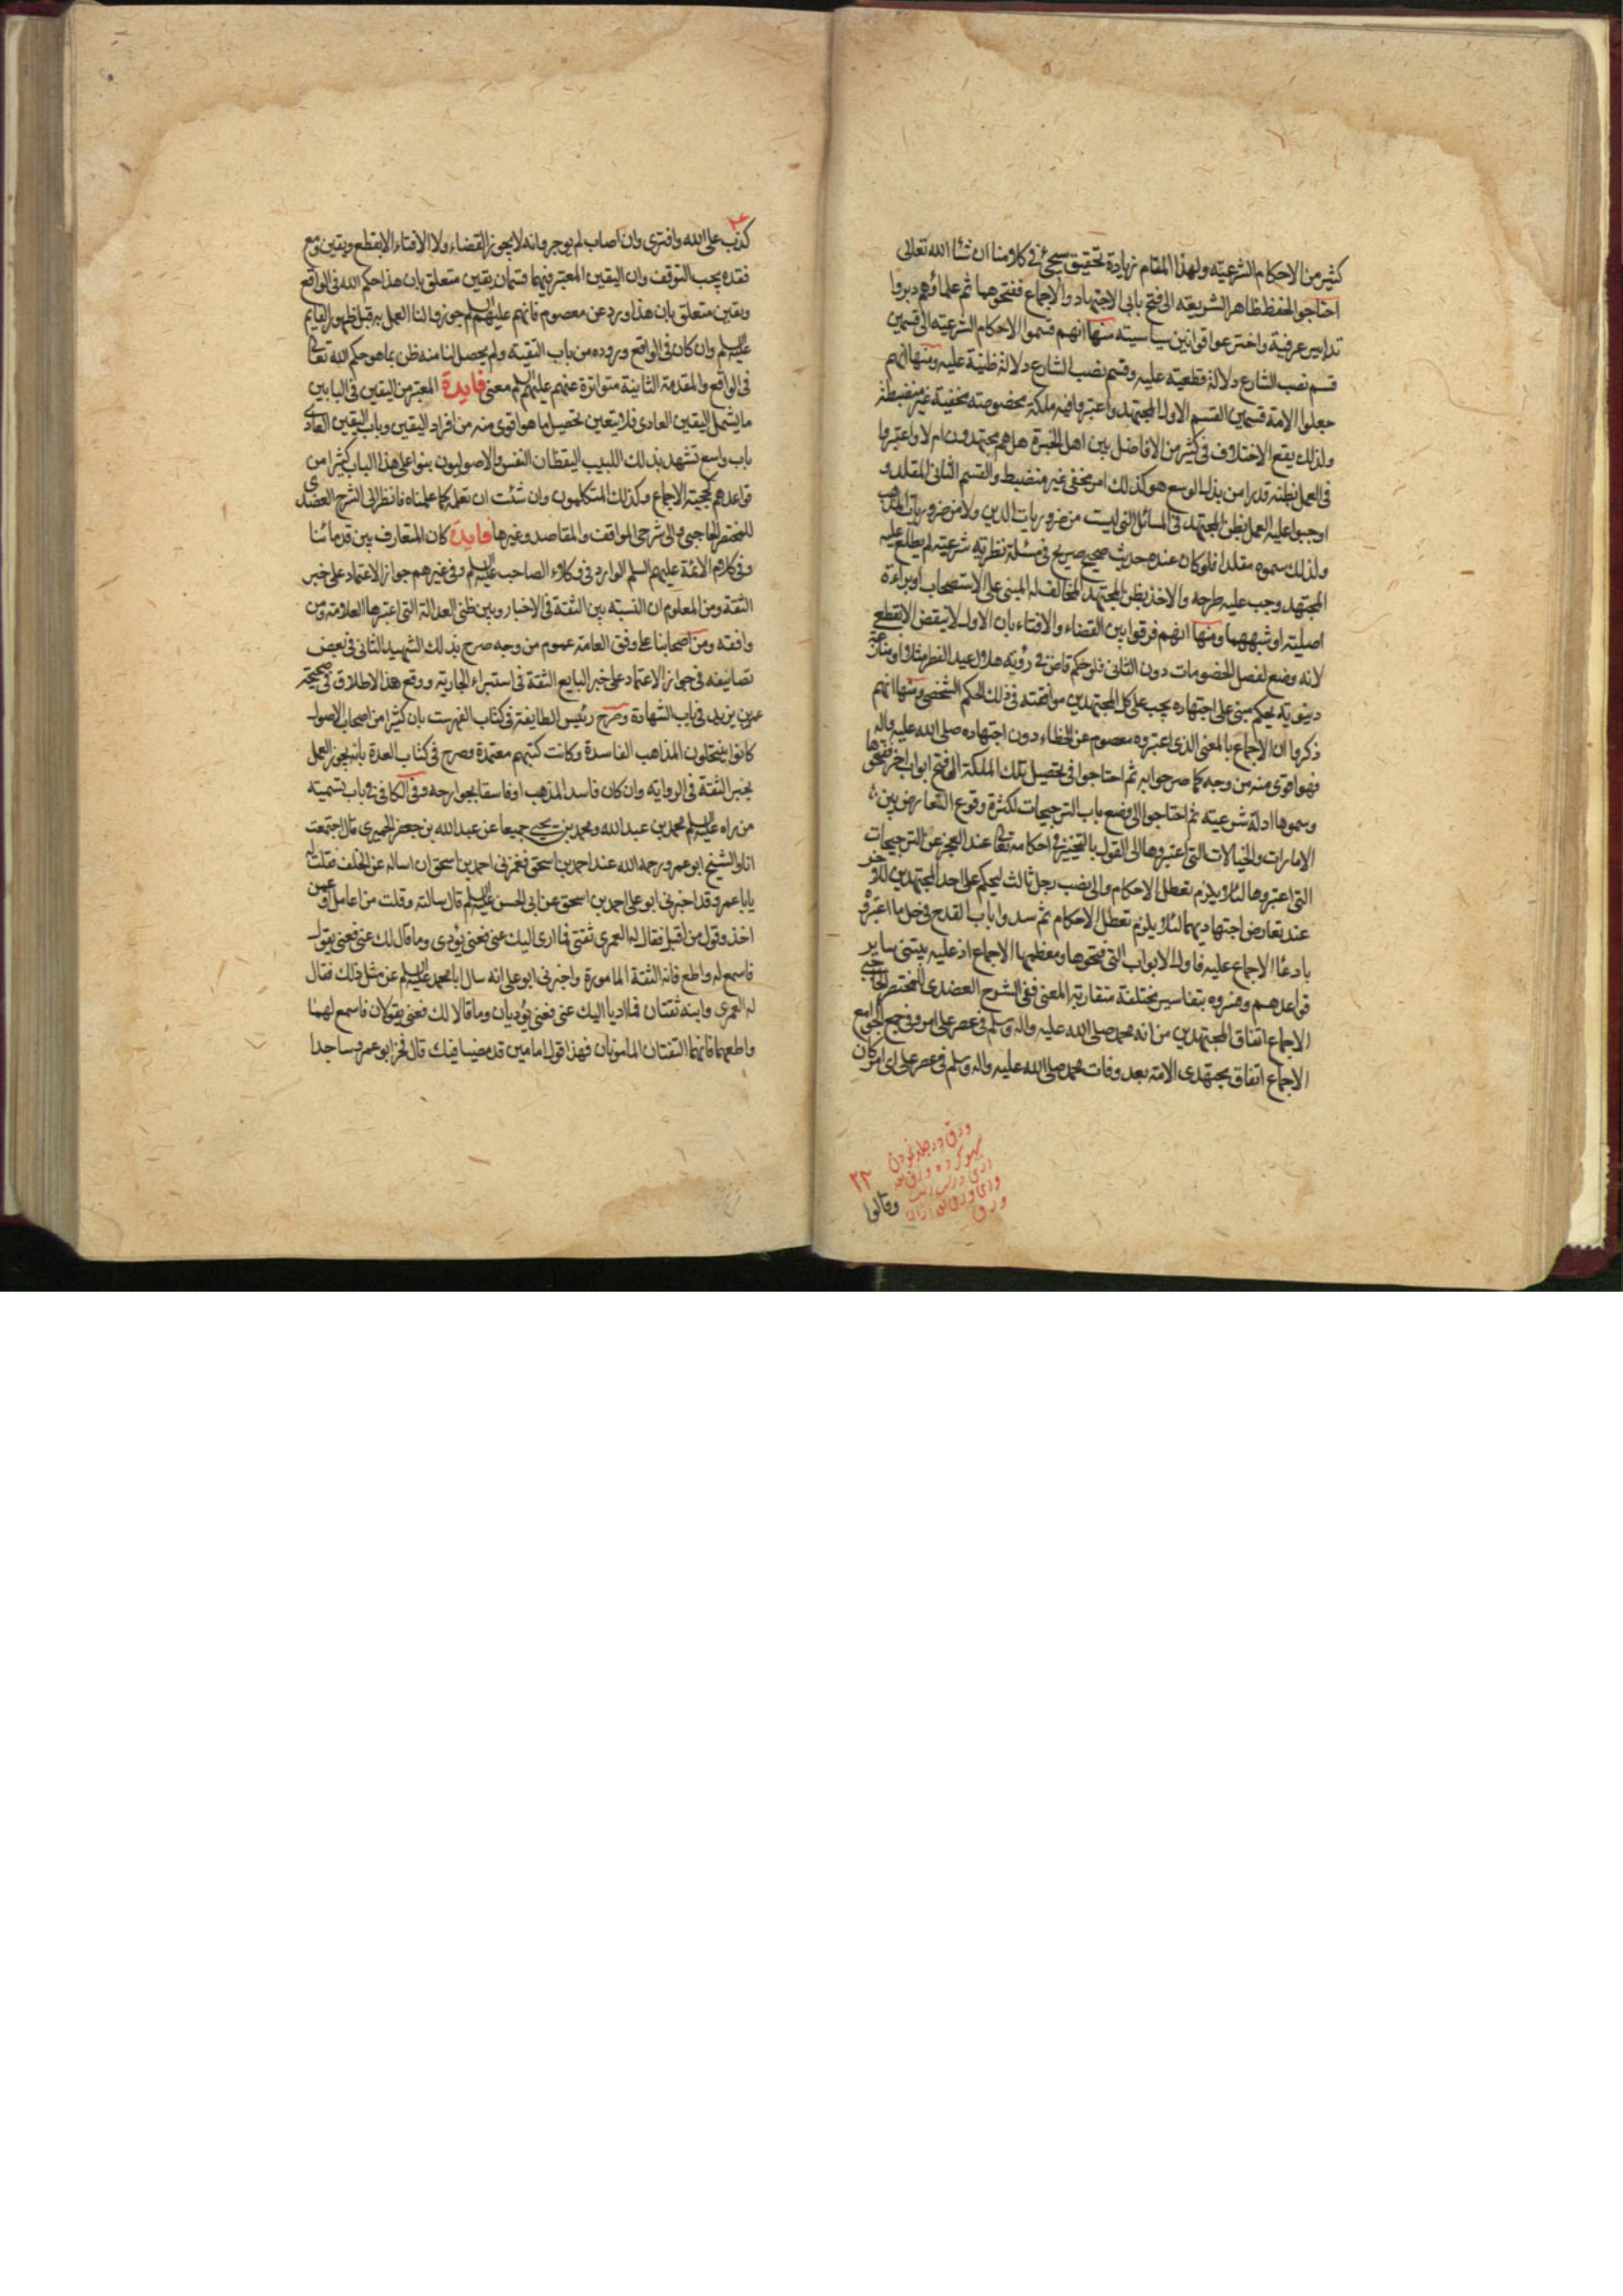 كثير من الاحكام الشرعيته ولهذا المقام زيادة تحقيق سيجئ في كلامنا ان شئا الله تعالى
احتاجوا لحفظ ظاهر الشريعته الى فتح بابى الاجتهاد والاجماع ففتحوهما ثم علماؤهم دبروا
تدابير عرفية واخترعوا قوانين سياسيته منها انهم قسموا الاحكام الشرعيته الى قسمين
قسم نصب الشارع دلالة قطعيته عليه وقسم نصب الشارع دلالة ظنية عليه ومنها انهم
جعلوا الامة قسمين القسم الاول المجتهد واعتبروا فيه ملكة مخصوصته مخفية غير منضبطة
ولذلك يقع الاختلاف في كثير من الافاضل بين اهل الخبرة هل هم مجتهدون ام لا واعتبروا
في العمل بظنه قدرا من بذل الوسع هو كذلك امر مخفى غير منضبط والقسم الثانى المقلد و
اوجبوا عليه العمل بظن المجتهد في المسائل التي ليست من ضروريات الدين ولا من ضروريات المذهب
ولذلك سموه مقلدا فلو كان عنده حديث صحيح صريح في مسئلة نظرية شرعيته لم يطلع عليه
المجتهد وجب عليه طرحه والاخذ بظن المجتهد المخالف له المبنى على الاستصحاب او براءة
اصليته او شبههما ومنها انهم فرقوا بين القضاء والافتاء بان الاول لا ينقض الا بقطع
لانه وضع لفصل الخصومات دون الثانى فلو حكم قاض في رؤيه هلال عيد الفطر مثلا او منازعة
دينويه بحكم مبنى على اجتهاده يجب على كل المجتهدين موافقته في ذلك الحكم الشخصى ومنها انهم
ذكروا ان الاجماع بالمعنى الذى اعتبروه معصوم عن الخطاء دون اجتهاده صلى الله عليه واله
فهو اقوى منه من وجه كما صرحوا به ثم احتاجوا في تحصيل تلك الملكة الى فتح ابواب اخر ففتحوها
وسموها ادلة شرعيته ثم احتاجوا الى وضع باب الترجيحات لكثرة وقوع التعارض بين
الامارات والخيالات التي اعتبروها الى القول بالتخيير في احكامه تعالى عند العجز عن الترجيحات
التي اعتبروها لئلا يلزم تعطل الاحكام والى نصب رجل ثالث ليحكم على احد المجتهدين للاخر
عند تعارض اجتهاديهما لئلا يلزم تعطل الاحكام ثم سدوا باب القدح في كل ما اعتبروه
بادعا الاجماع عليه فاول الابواب التي فتحوها ومعظمها الاجماع اذ عليه يبتنى ساير
قواعدهم وفسروه بتفاسير مختلفة متقاربة المعنى ففى الشرح العضدى للمختصر الحاجبى
الاجماع اتفاق المجتهدين من امة محمد صلى الله عليه واله وسلم في عصر على امر وفي جمع الجوامع
الاجماع اتفاق مجتهدى الامة بعد وفات محمد صلى الله عليه واله وسلم في عصر على اى امر كان
۲۲
وقالوا
كذب على الله وافترى وان اصاب لم يوجر وانه لا يجوز القضاء ولا الافتاء الا بقطع ويقين ومع
فقده يجب التوقف وان اليقين المعتبر فيهما قسمان يقين متعلق بان هذا حكم الله في الواقع
ويقين متعلق بان هذا ورد عن معصوم فانهم عليهم السلم جوزوا لنا العمل به قبل ظهور القايم
عليه السلم وان كان في الواقع وروده من باب التقية ولم يحصل لنا منه ظن بما هو حكم الله تعالى
في الواقع والمقدمة الثانية متواترة عنهم عليهم السلم معنى فايدة المعتبر من اليقين في البابين
ما يشمل اليقين العادى فلا يتعين تحصيل ما هو اقوى منه من افراد اليقين وباب اليقين العادى
باب واسع تشهد بذلك اللبيب اليقظان النفس والاصوليون بنوا على هذا الباب كثيرا من
قواعدهم كحجيته الاجماع وكذلك المتكلمون وان شئت ان تعلم كما علمناه فانظر الى الشرح العضدى
للمختصر الحاجبى والى شرحى المواقف والمقاصد وغيرها فايدة كان المتعارف بين قدمائنا
وفي كلام الائمة عليهم السلم الوارد في وكلاء الصاحب عليه السلم وفي غيرهم جواز الاعتماد على خبر
الثقة ومن المعلوم ان النسبته بين الثقة في الاخبار وبين ظنى العدالة التي اعتبرها العلامة ومن
وافقه ومن اصحابنا على وفق العامة عموم من وجه صرح بذلك الشهيد الثانى في بعض
تصانيفه في جواز الاعتماد على خبر البايع الثقة في استبراء الجارية ووقع هذا الاطلاق في صحيحة
عمر بن يزيد في باب الشهادة وصرح رئيس الطايفة في كتاب الفهرست بان كثيرا من اصحاب الاصول
كانوا ينتحلون المذاهب الفاسدة وكانت كتبهم معتمدة وصرح في كتاب العدة بانه يجوز العمل
بخبر الثقة في الرواية وان كان فاسد المذهب او فاسقا بجوارحه وفي الكافى في باب تسميته
من راه عليه السلم محمد بن عبدالله ومحمد بن يحيى جميعا عن عبدالله بن جعفر الحميرى قال اجتمعت
انا والشيخ ابو عمرو رحمه الله عند احمد بن اسحق فغمزنى احمد بن اسحق ان اساله عن الخلف فقلت له
يابا عمرو قد اخبرنى ابو على احمد بن اسحق عن ابى الحسن عليه السلم قال سالته وقلت من اعامل او عمن
اخذ وقول من اقبل فقال له العمرى ثقتى فما ادى اليك عنى فعنى يؤدى وما قال لك عنى فعنى يقول
فاسمع له واطع فانه الثقة المامورة واخبرنى ابو على انه سال ابا محمد عليه السلم عن مثل ذلك فقال
له العمرى وابنه ثقتان فما اديا اليك عنى فعنى يؤديان وما قالا لك فعنى يقولان فاسمع لهما
واطعهما فانهما الثقتان المامونان فهذا قول امامين قد مضيا فيك قال فخر ابو عمرو ساجدا